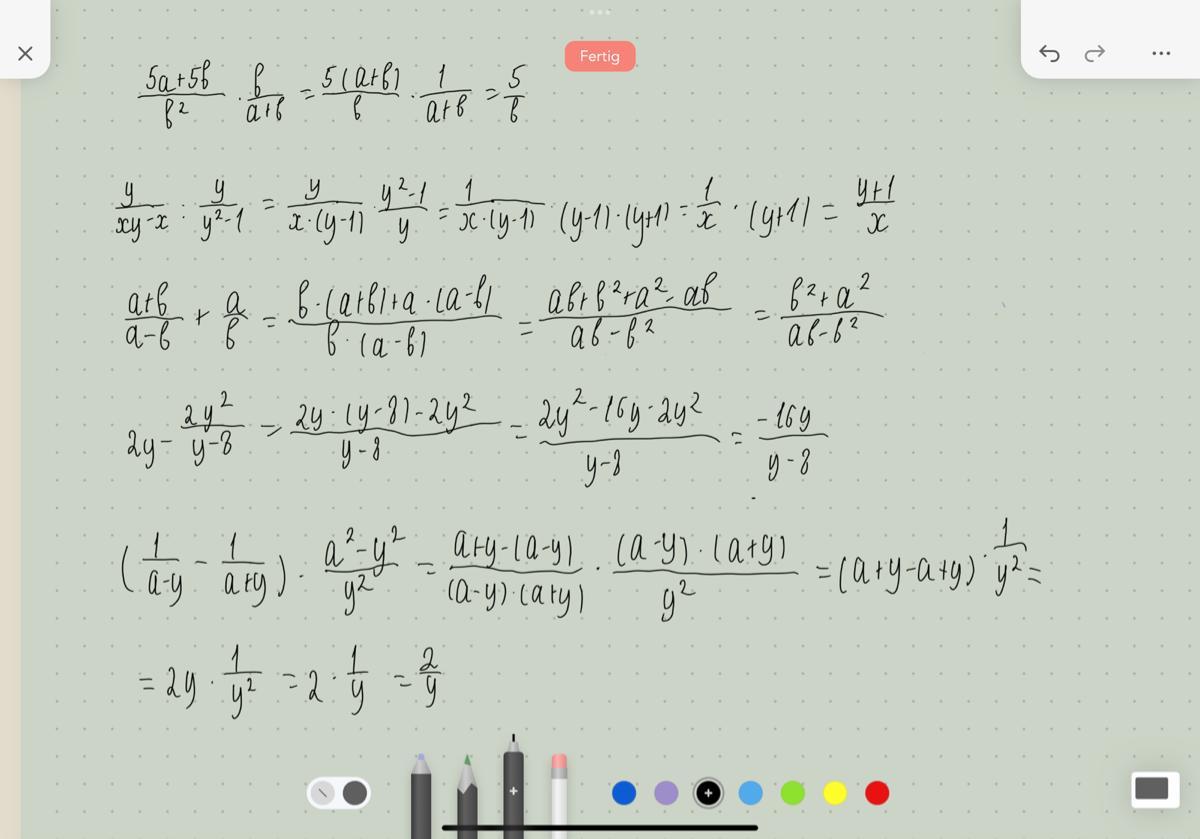 Fertig
(5a+5b)/b² · b/(a+b) = 5(a+b)/b · 1/(a+b) = 5/b
y/(xy-x) : y/(y²-1) = y/(x·(y-1)) · (y²-1)/y = 1/(x·(y-1)) (y-1)·(y+1) = 1/x · (y+1) = (y+1)/x
(a+b)/(a-b) + a/b = (b·(a+b)+a·(a-b))/(b·(a-b)) = (ab+b²+a²-ab)/(ab-b²) = (b²+a²)/(ab-b²)
2y - 2y²/(y-8) = (2y·(y-8)-2y²)/(y-8) = (2y²-16y-2y²)/(y-8) = -16y/(y-8)
(1/(a-y) - 1/(a+y)) · (a²-y²)/y² = (a+y-(a-y))/((a-y)·(a+y)) · ((a-y)·(a+y))/y² = (a+y-a+y) · 1/y² =
= 2y · 1/y² = 2 · 1/y = 2/y